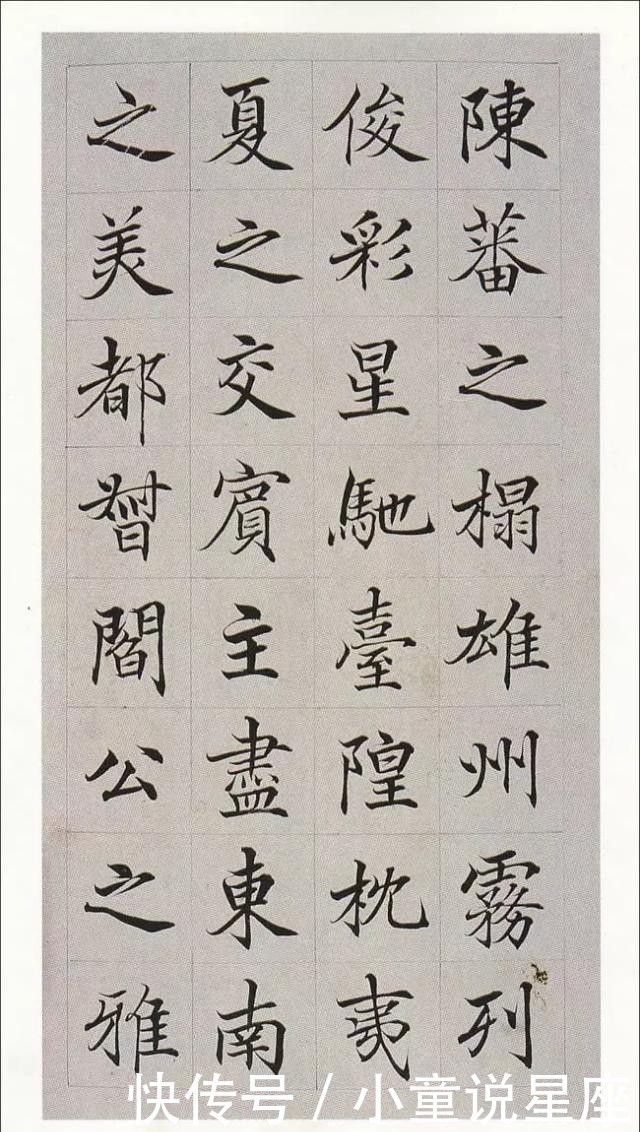 陳蕃之榻雄州霧列
俊彩星馳臺隍枕夷
夏之交賓主盡東南
之美都督閻公之雅
快传号 / 小童说星座